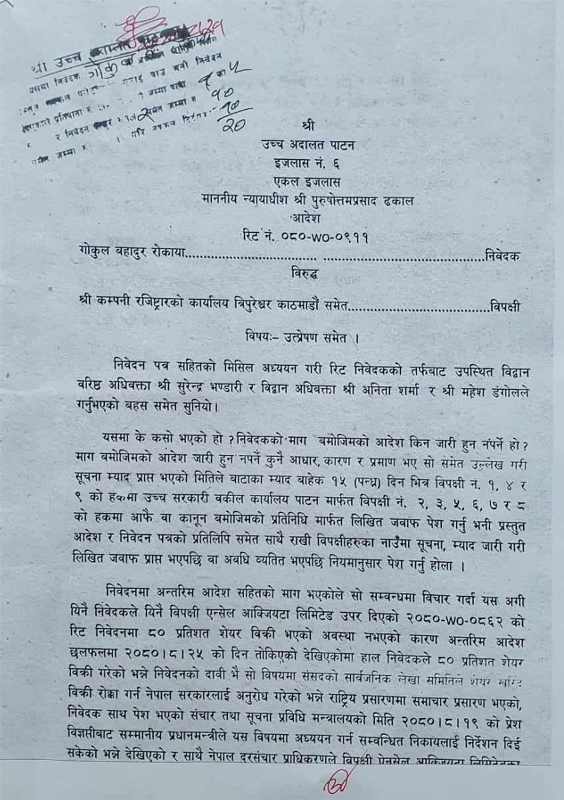 श्री उच्च
यसमा निवेदक गोकुल
श्री
उच्च अदालत पाटन
इजलास नं. ६
एकल इजलास
माननीय न्यायाधीश श्री पुरुषोत्तमप्रसाद ढकाल
आदेश
रिट नं. ०८०-WO-०९११
गोकुल वहादुर रोकाया.................................. ..........................................निवेदक
विरुद्ध
श्री कम्पनी रजिष्ट्रारको कार्यालय त्रिपुरेश्वर काठमाडौं समेत.....................................विपक्षी
विषयः- उत्प्रेषण समेत ।
निवेदन पत्र सहितको मिसिल अध्ययन गरी रिट निवेदकको तर्फबाट उपस्थित विद्वान
वरिष्ठ अधिवक्ता श्री सुरेन्द्र भण्डारी र विद्वान अधिवक्ता श्री अनिता शर्मा र श्री महेश डंगोलले
गर्नुभएको बहस समेत सुनियो।
यसमा के कसो भएको हो ? निवेदकको माग बमोजिमको आदेश किन जारी हुन नपर्ने हो ?
माग बमोजिमको आदेश जारी हुन नपर्ने कुनै आधार, कारण र प्रमाण भए सो समेत उल्लेख गरी
सूचना म्याद प्राप्त भएको मितिले बाटाका म्याद बाहेक १५ (पन्ध्र) दिन भित्र विपक्षी नं. १, ४ र
९ को हकमा उच्च सरकारी वकील कार्यालय पाटन मार्फत विपक्षी नं. २, ३, ५, ६, ७ र ८
को हकमा आफै वा कानून बमोजिमको प्रतिनिधि मार्फत लिखित जवाफ पेश गर्नु भनी प्रस्तुत
आदेश र निवेदन पत्रको प्रतिलिपि समेत साथै राखी विपक्षीहरुका नाउँमा सूचना, म्याद जारी गरी
लिखित जवाफ प्राप्त भएपछि वा अवधि व्यतित भएपछि नियमानुसार पेश गर्नु होला ।
निवेदनमा अन्तरिम आदेश सहितको माग भएकोले सो सम्वन्धमा विचार गर्दा यस अगी
यिनै निवेदकले यिनै विपक्षी एन्सेल आक्जियटा लिमिटेड उपर दिएको २०८०-WO-०८६२ को
रिट निवेदनमा ८० प्रतिशत शेयर विक्री भएको अवस्था नभएको कारण अन्तरिम आदेश
छलफलमा २०८०।८।२५ को दिन तोकिएको देखिएकोमा हाल निवेदकले ८० प्रतिशत शेयर
विक्री गरेको भन्ने निवेदनको दावी भै सो विषयमा संसदको सार्वजनिक लेखा समितिले शेयर खरिद
विक्री रोक्का गर्न नेपाल सरकारलाई अनुरोध गरेको भन्ने राष्ट्रिय प्रसारणमा समाचार प्रसारण भएको,
निवेदक साथ पेश भएको संचार तथा सूचना प्रविधि मन्त्रालयको मिति २०८०।८।१९ को प्रेश
विज्ञप्तीबाट सम्मानीय प्रधानमन्त्रीले यस विषयमा अध्ययन गर्न सम्वन्धित निकायलाई निर्देशन दिई
सकेको भन्ने देखिएको र साथै नेपाल दूरसंचार प्राधिकरणले विपक्षी ऐनसेल आक्जियटा लिमिटेडका